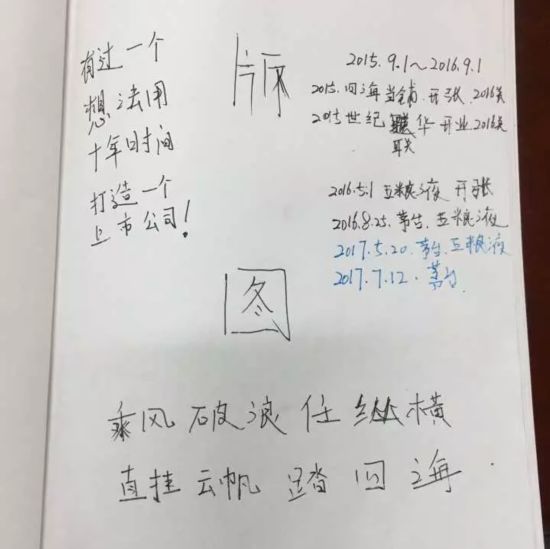 有过一个
想法用
十年时间
打造一个
上市公司!
版
2015.9.1~2016.9.1
2015.四海当铺.开张.2016关
2015世纪华开业.2016关
联
2016.5.1 五粮液 开张
2016.8.25.茅台.五粮液
2017.5.20.茅台.五粮液
2017.7.12.茅台
图
乘风破浪任纵横
直挂云帆踏四海.